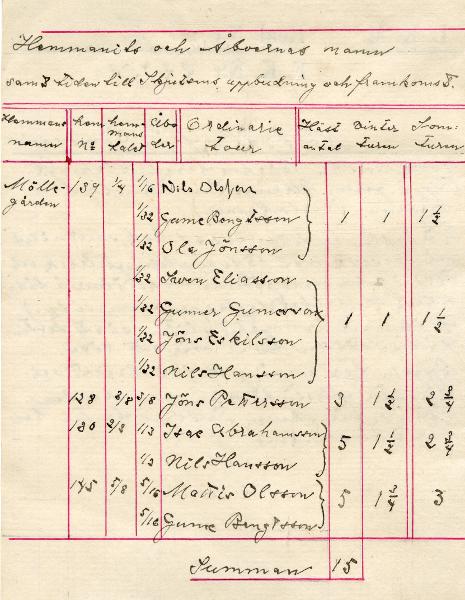 Hemmanets och Åboernas namn
samt tiden till Skjutsens uppbudning och framkomst.
Hemmans namn hem. No hemmans halt Åboder Ordinarie tour Häst antal Vinter turen Somturen
Möllegården 139 1/4 1/16 Nils Olsson
1/32 Gunne Bengtsson 1 1 1 1/2
1/32 Ole Jönsson
1/32 Swen Eliasson
1/32 Gunner Gunersson 1 1 1 1/2
1/32 Jöns Eskilsson
1/32 Nils Hansson
128 3/8 3/8 Jöns Pettersson 3 1 1/2 2 3/4
130 2/3 1/3 Isac Abrahamsson 5 1 1/2 2 3/4
1/3 Nils Hansson
145 5/8 5/16 Mattis Olsson 5 1 3/4 3
5/16 Gunne Bengtsson
Summan 15